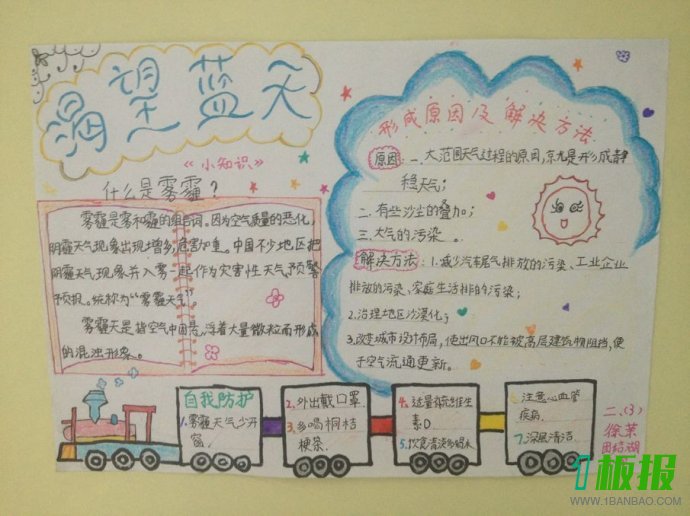 渴望蓝天
《小知识》
什么是雾霾？
雾霾是雾和霾的组合词。因为空气质量的恶化，
阴霾天气现象出现增多，危害加重。中国不少地区把
阴霾天气现象并入雾一起作为灾害性天气预警
预报。统称为“雾霾天气”。
雾霾天是指空气中因悬浮着大量微粒而形成
的混浊形象。
形成原因及解决方法
原因：一、大范围天气过程的原因，尤是形成青
稳天气；
二、有些沙尘的叠加；
三、大气的污染。
解决方法：1.减少汽车尾气排放的污染、工业企业
排放的污染、家庭生活排的污染；
2.治理地区沙漠化；
3.改变城市设计布局，使出风口不能被高层建筑物阻挡，便
于空气流通更新。
自我防护
1.雾霾天气少开
窗
2.外出戴口罩
3.多喝桐桔
梗茶.
4.适量补充维生
素D
5.饮食清淡多喝水
注意心血管
疾病.
7.深层清洁.
二、(3)
徐
团结湖
1板报
WWW.1BANBAO.COM